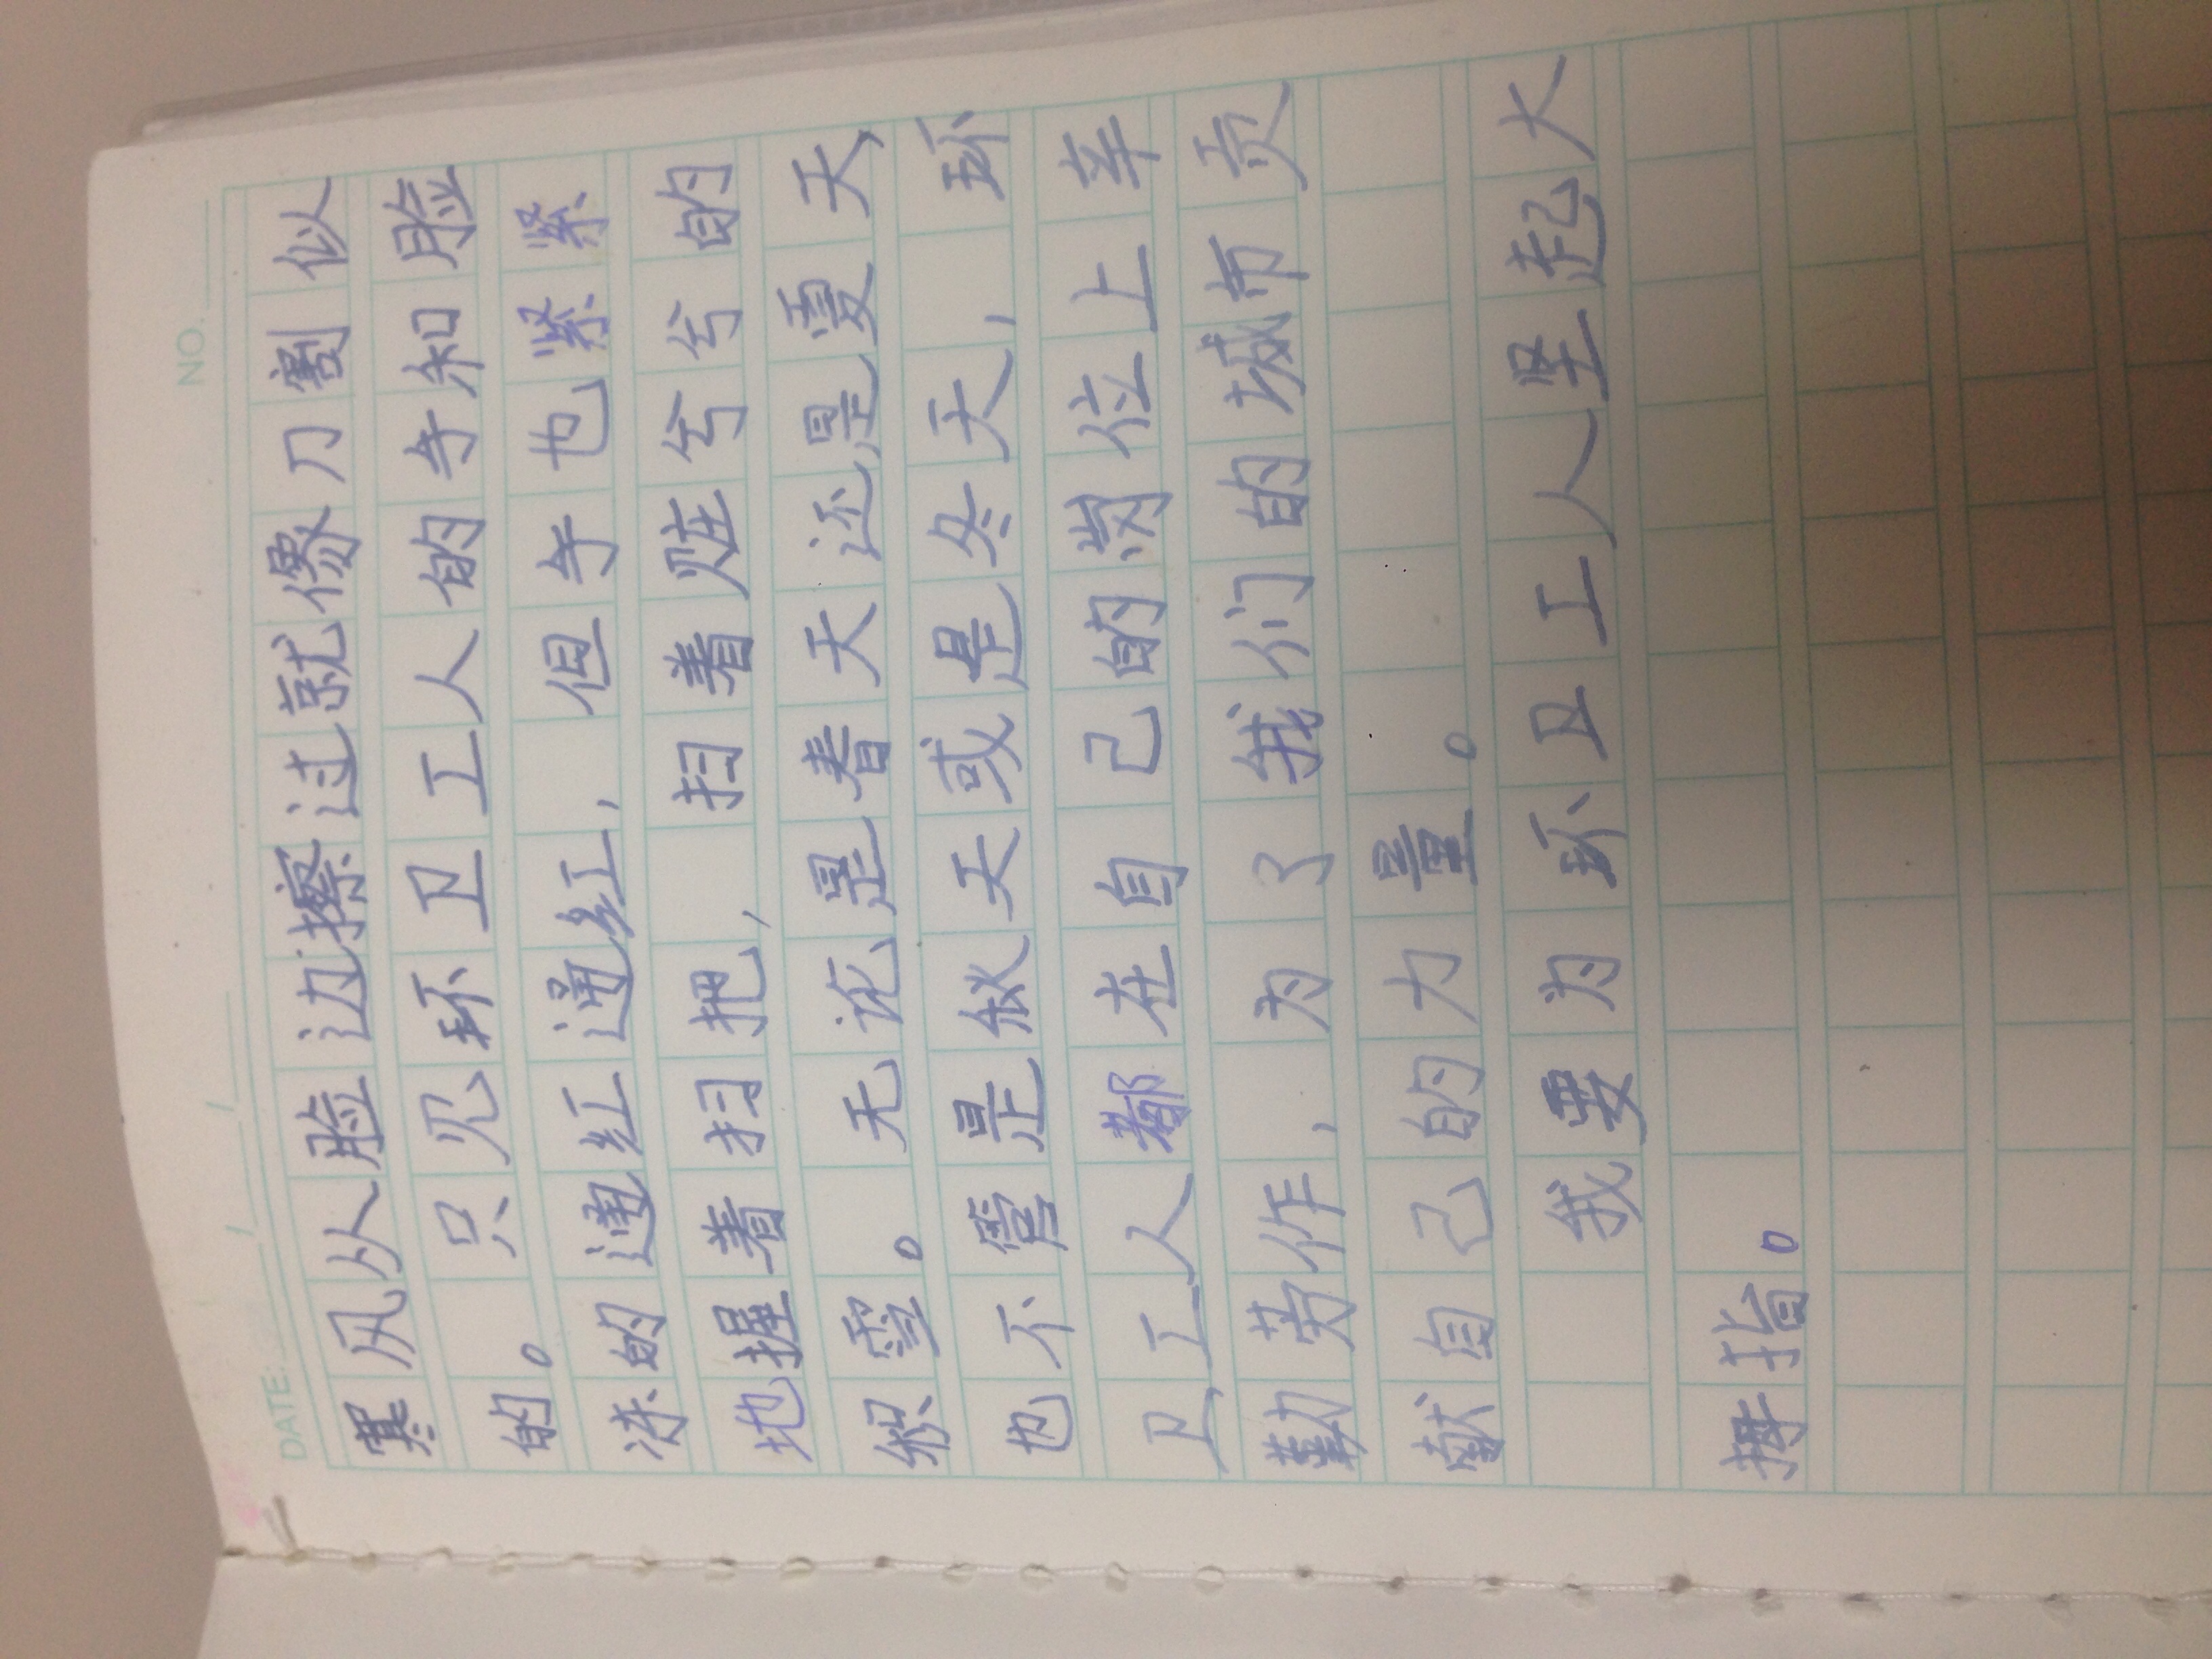 DATE: / /
NO.
寒风从脸边擦过就像刀割似
的。只见环卫工人的手和脸
冻的通红通红，但手也紧紧
地握着扫把，扫着赃兮兮的
积雪。无论是春天还是夏天，
也不管是秋天或是冬天，环
卫工人都在自己的岗位上辛
勤劳作，为了我们的城市贡
献自己的力量。
我要为环卫工人坚起大
拇指。